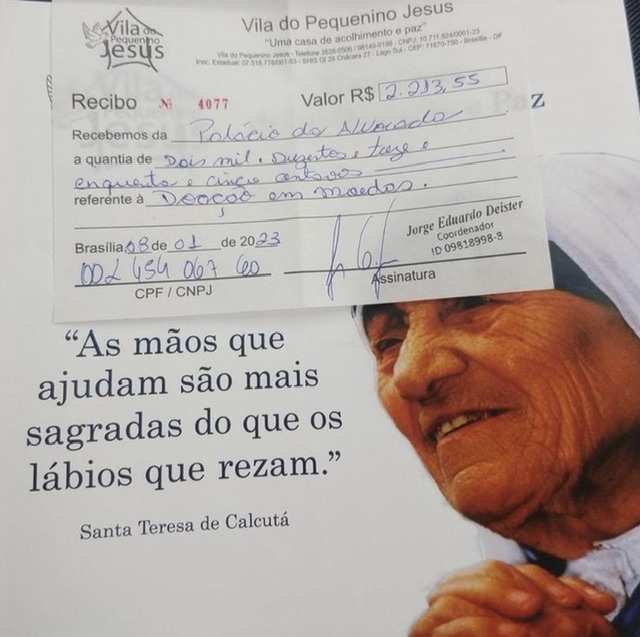 Vila do
Pequenino
Jesus
Vila do Pequenino Jesus
"Uma casa de acolhimento e paz"
Vila do Pequenino Jesus - Telefone
SHIS QI 26 Chácara 27 - Lago Sul - CEP: 71670-790 - Brasília - DF
Recibo Nº 4077 Valor R$ 2.213,55
Recebemos da Palácio da Alvorada
a quantia de Dois mil. Duzentos e treze e
cinquenta e cinco centavos
referente à Doação em moedas.
Brasília, 08 de 01 de 2023
002 454 067 60
CPF / CNPJ
Jorge Eduardo Deister
Coordenador
ID 09818998-8
Assinatura
Z
"As mãos que
ajudam são mais
sagradas do que os
lábios que rezam."
Santa Teresa de Calcutá